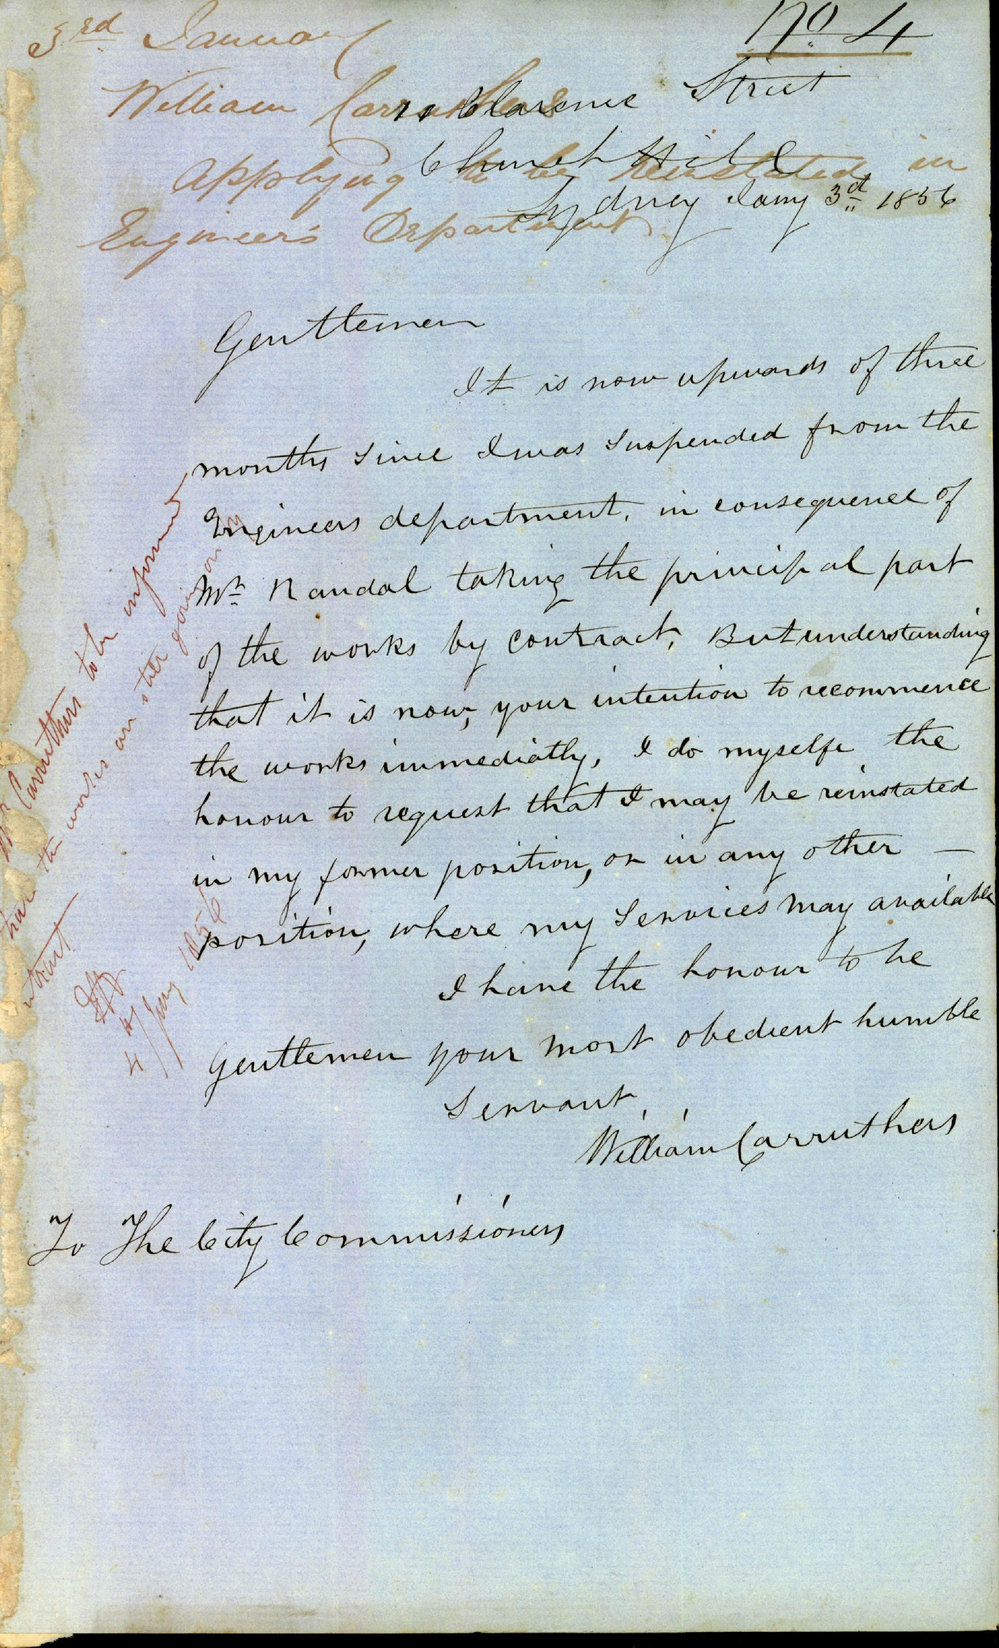 3rd January
No. 4
William Carruthers
Clarence Street
Church Hill
Applying to be Reinstated in
Sydney Jany 3rd 1856
Engineer's Department
Gentlemen
It is now upwards of three
months since I was suspended from the
Engineers department, in consequence of
Mr Randal taking the principal part
of the works by contract, But understanding
that it is now, your intention to recommence
the works immediatly, I do myselfe the
honour to request that I may be reinstated
in my former position, or in any other —
position, where my services may available
I have the honour to be
Gentlemen your most obedient humble
Servant,
William Carruthers
To The City Commissioners
Mr Carruthers to be informed
that the works are still going on by
contract
4/Jany 1856